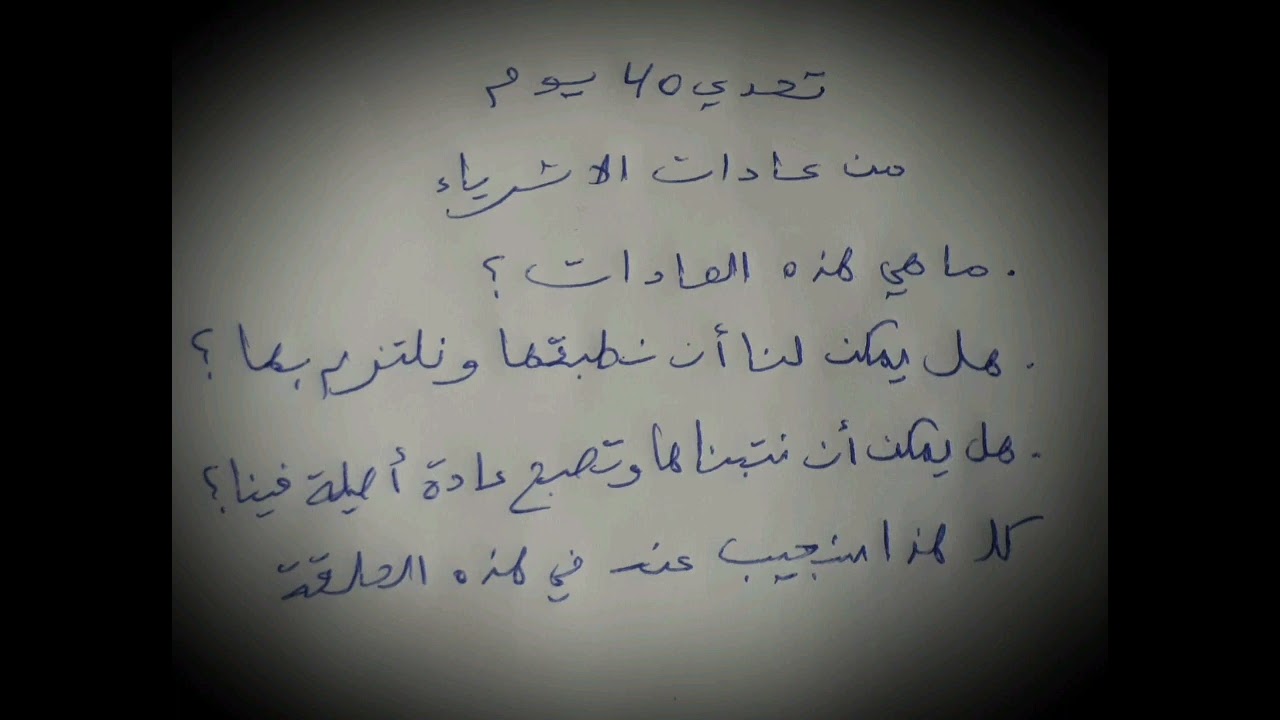 تحدي 40 يوم
من عادات الاثرياء
. ما هي هذه العادات ؟
. هل يمكن لنا أن نطبقها ونلتزم بها ؟
. هل يمكن أن نتبناها وتصبح عادة أصيلة فينا ؟
كل هذا سنجيب عنه في هذه الحلقة